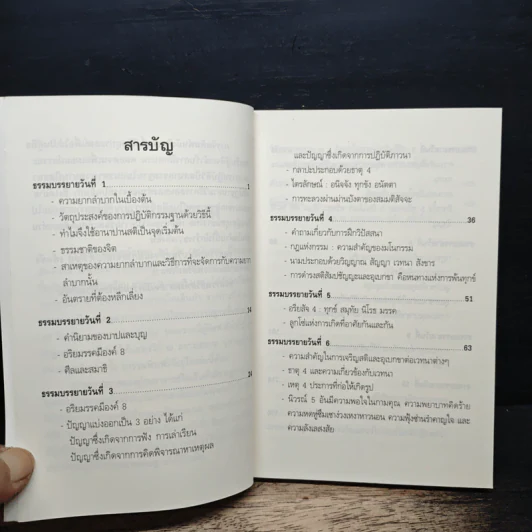 สารบัญ
ธรรมบรรยายวันที่ 1 1
- ความยากลำบากในเบื้องต้น
- วัตถุประสงค์ของการปฏิบัติกรรมฐานด้วยวิธีนี้
- ทำไมจึงใช้อานาปานสติเป็นจุดเริ่มต้น
- ธรรมชาติของจิต
- สาเหตุของความยากลำบากและวิธีการที่จะจัดการกับความยาก
ลำบากนั้น
- อันตรายที่ต้องหลีกเลี่ยง
ธรรมบรรยายวันที่ 2 14
- คำนิยามของบาปและบุญ
- อริยมรรคมีองค์ 8
- ศีลและสมาธิ
ธรรมบรรยายวันที่ 3
- อริยมรรคมีองค์ 8
- ปัญญาแบ่งออกเป็น 3 อย่าง ได้แก่
ปัญญาซึ่งเกิดจากการฟัง การเล่าเรียน
ปัญญาซึ่งเกิดจากการคิดพิจารณาหาเหตุผล
และปัญญาซึ่งเกิดจากการปฏิบัติภาวนา
- กลาปะประกอบด้วยธาตุ 4
- ไตรลักษณ์ : อนิจจัง ทุกขัง อนัตตา
- การทะลวงผ่านม่านบังตาของสมมติสัจจะ
ธรรมบรรยายวันที่ 4 36
- คำถามเกี่ยวกับการฝึกวิปัสสนา
- กฎแห่งกรรม : ความสำคัญของมโนกรรม
- นามประกอบด้วยวิญญาณ สัญญา เวทนา สังขาร
- การดำรงสติสัมปชัญญะและอุเบกขา คือหนทางแห่งการพ้นทุกข์
ธรรมบรรยายวันที่ 5 51
- อริยสัจ 4 : ทุกข์ สมุทัย นิโรธ มรรค
- ลูกโซ่แห่งการเกิดที่อาศัยกันและกัน
ธรรมบรรยายวันที่ 6 63
- ความสำคัญในการเจริญสติและอุเบกขาต่อเวทนาต่างๆ
- ธาตุ 4 และความเกี่ยวข้องกับเวทนา
- เหตุ 4 ประการที่ก่อให้เกิดรูป
- นิวรณ์ 5 อันมีความพอใจในกามคุณ ความพยาบาทคิดร้าย
ความหดหู่ซึมเซาง่วงเหงาหาวนอน ความฟุ้งซ่านรำคาญใจ และ
ความลังเลสงสัย